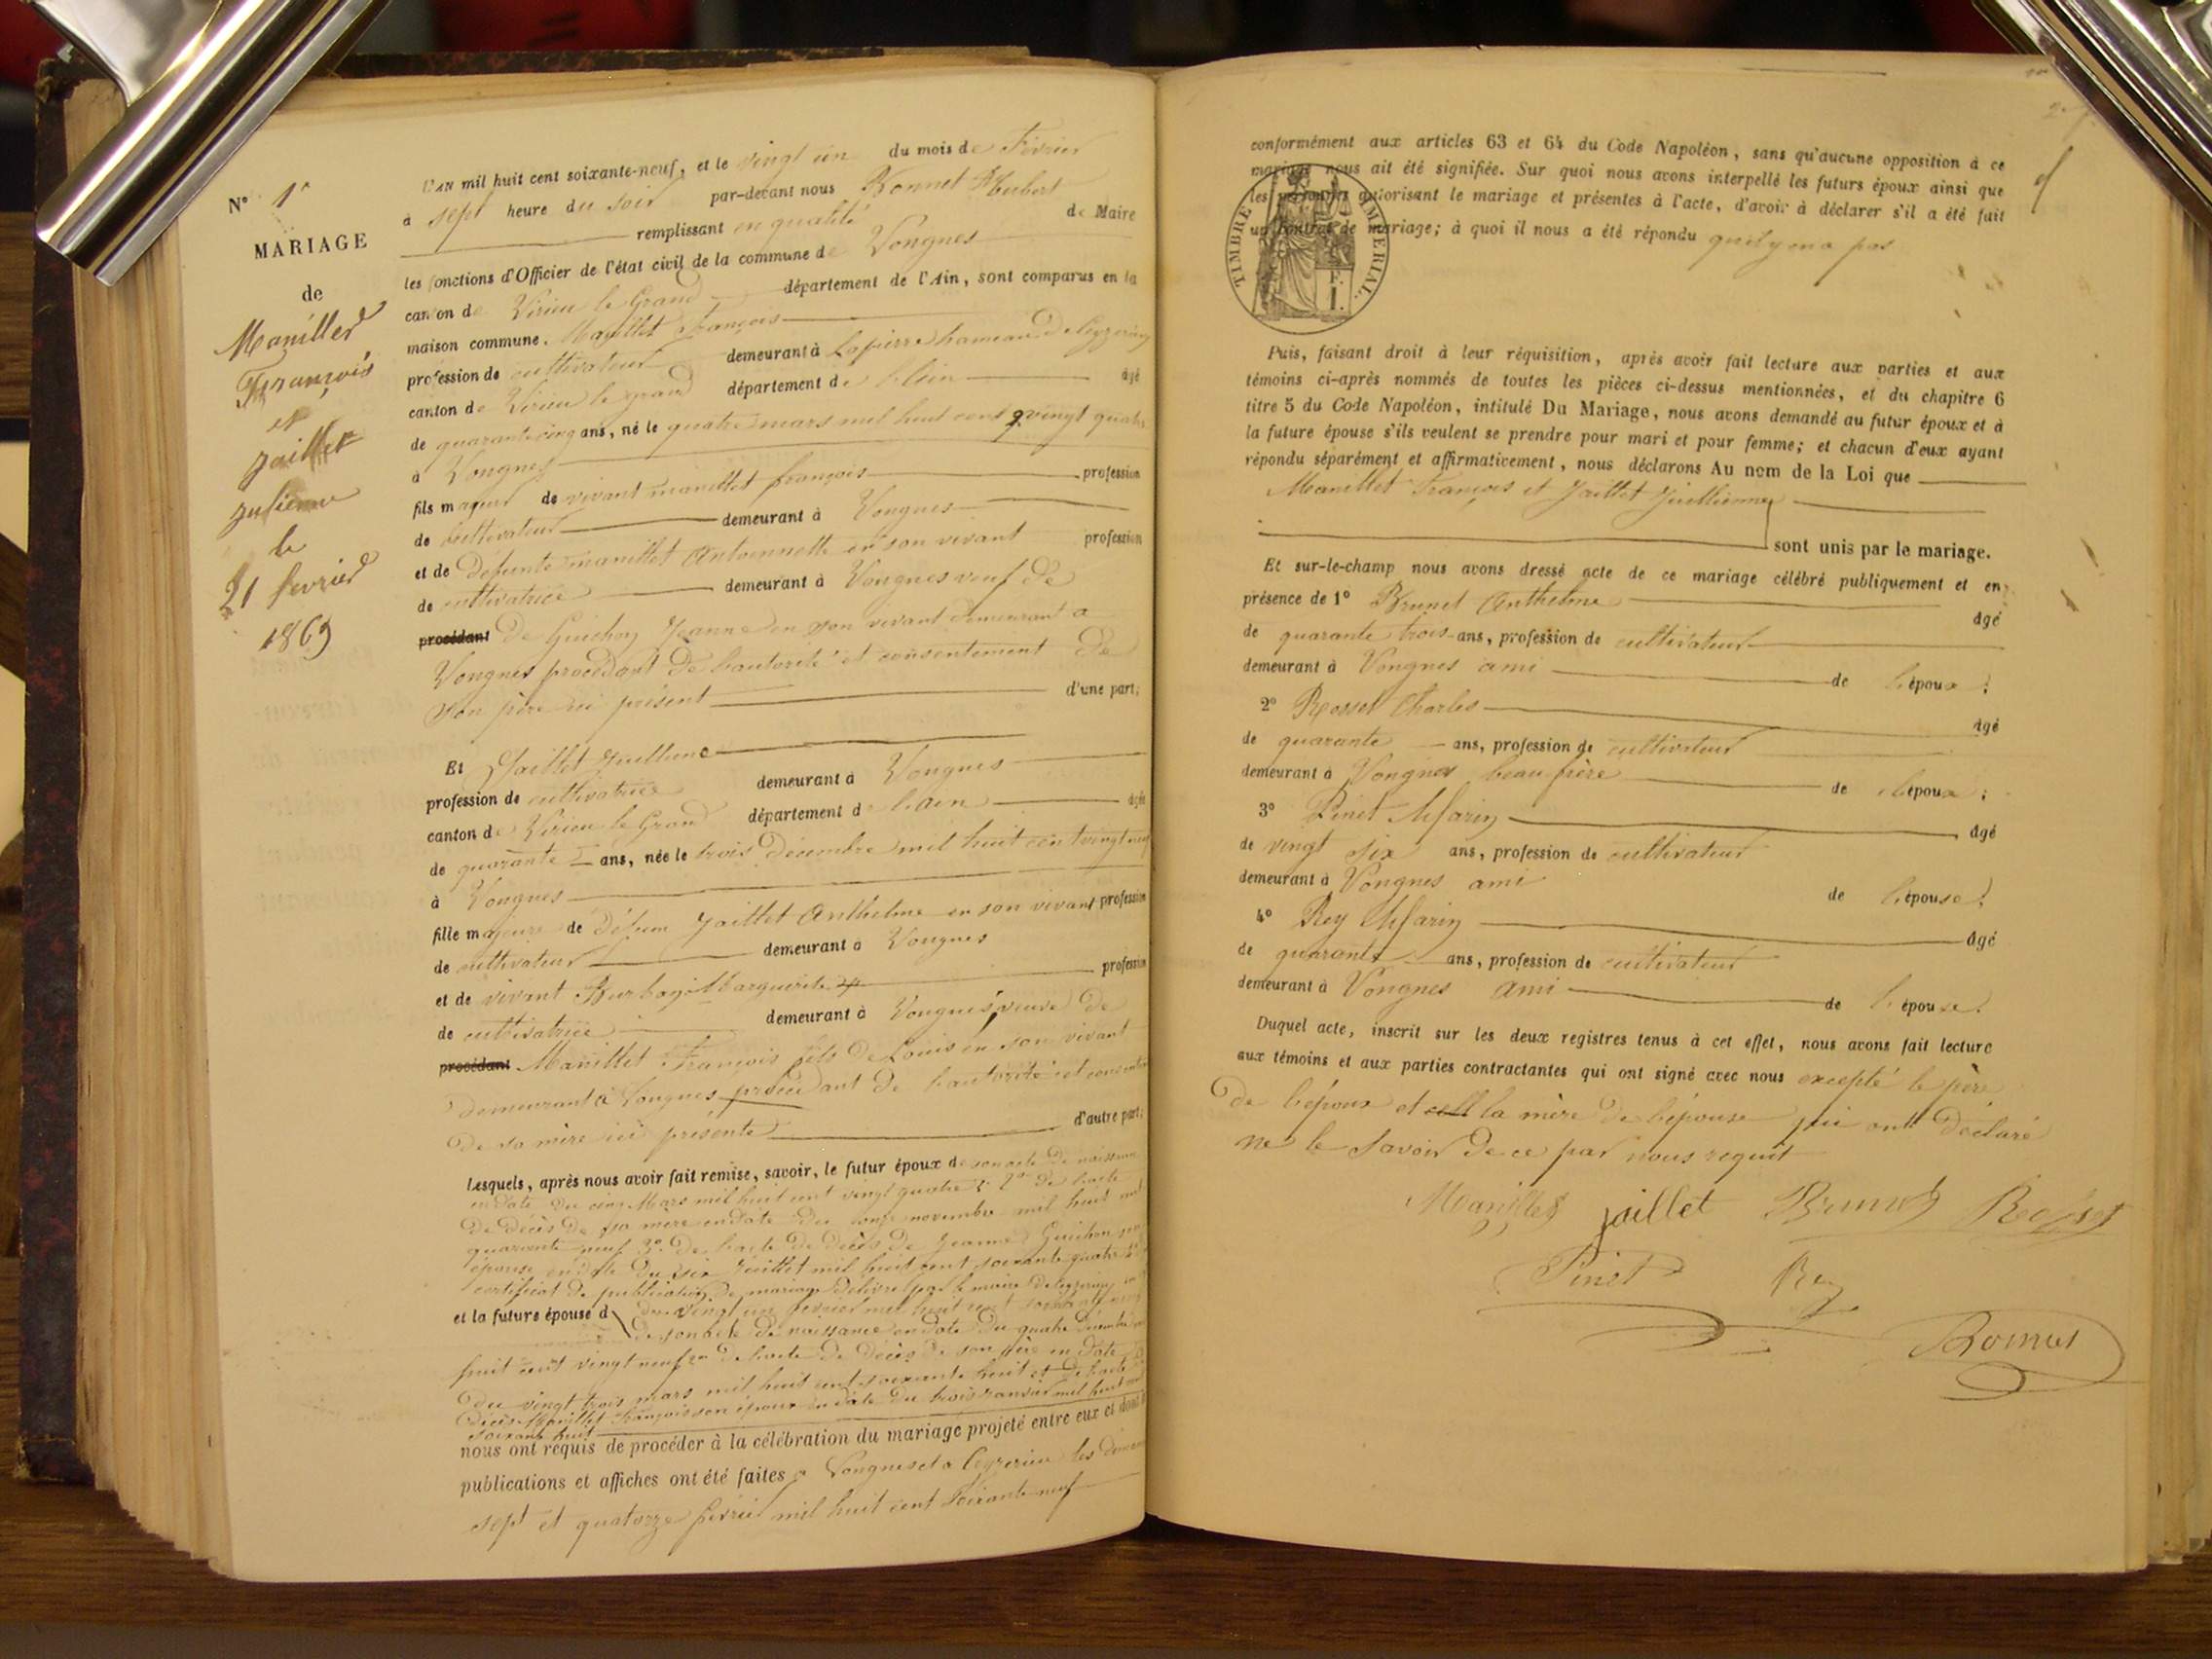 N° 1er
MARIAGE
de
Maniller
François
et
Jaillet
Julienne
le
21 fevrier
1869
L'AN mil huit cent soixante-neuf, et le vingt un du mois de Février
à sept heure du soir par-devant nous Bonnet Hubert
remplissant en qualité de Maire
les fonctions d'Officier de l'état civil de la commune de Vongnes
canton de Virieu le Grand département de l'Ain, sont comparus en la
maison commune. Manillet François
profession de cultivateur demeurant à Lapierre hameau de Ceyzerieu
canton de Virieu le grand département de l'Ain âgé
de quarante cinq ans, né le quatre mars mil huit cent vingt quatre
à Vongnes
fils majeur de vivant manillet françois profession
de cultivateur demeurant à Vongnes
et de défunte manillet Antoinnette en son vivant profession
de cultivatrice demeurant à Vongnes veuf de
procédant de Guichon Jeanne en son vivant demeurant a
Vongnes procédant de l'autorité et consentement de
son père ici présent d'une part;
Et Jaillet Juillienne
profession de cultivatrice demeurant à Vongnes
canton de Virieu le Grand département de l'ain âgée
de quarante ans, née le trois décembre mil huit cent vingt neuf
à Vongnes
fille majeure de défun Jaillet Anthelme en son vivant profession
de cultivateur demeurant à Vongnes
et de vivant Marguerite profession
de cultivatrice demeurant à Vongnes veuve de
procédant Manillet François fils de Louis en son vivant
demeurant à Vongnes procédant de l'autorité et consentement
de sa mère ici présente d'autre part;
Lesquels, après nous avoir fait remise, savoir, le futur époux de son acte de naissance
en date du cinq Mars mil huit cent vingt quatre 2° de l'acte
de décès de sa mère en date du onze novembre mil huit cent
quarante neuf 3° de l'acte de décès de Jeanne Guichon son
épouse en date du six Juillet mil huit cent soixante quatre
certificat de publication de mariage délivré par le maire de Ceyzerieu
et la future épouse d du vingt un fevrier mil huit cent soixante neuf
de son acte de naissance en date du quatre décembre
huit cent vingt neuf de l'acte de décès de son père en date
du vingt trois mars mil huit cent soixante huit et de l'acte
décès Manillet François son époux en date du trois Janvier mil huit cent
soixante huit
nous ont requis de procéder à la célébration du mariage projeté entre eux et dont les
publications et affiches ont été faites a Vongnes et a Ceyzerieu les dimanches
sept et quatorze fevrier mil huit cent soixante neuf
conformément aux articles 63 et 64 du Code Napoléon, sans qu'aucune opposition à ce
mariage nous ait été signifiée. Sur quoi nous avons interpellé les futurs époux ainsi que
les personnes autorisant le mariage et présentes à l'acte, d'avoir à déclarer s'il a été fait
un contrat de mariage; à quoi il nous a été répondu quil y en a pas
TIMBRE IMPERIAL.
1 F.
Puis, faisant droit à leur réquisition, après avoir fait lecture aux parties et aux
témoins ci-après nommés de toutes les pièces ci-dessus mentionnées, et du chapitre 6
titre 5 du Code Napoléon, intitulé Du Mariage, nous avons demandé au futur époux et à
la future épouse s'ils veulent se prendre pour mari et pour femme; et chacun d'eux ayant
répondu séparément et affirmativement, nous déclarons Au nom de la Loi que
Manillet François et Jaillet Juillienne
sont unis par le mariage.
Et sur-le-champ nous avons dressé acte de ce mariage célébré publiquement et en
présence de 1° Brunet Anthelme âgé
de quarante trois ans, profession de cultivateur
demeurant à Vongnes ami de l'époux;
2° Rosset Charles âgé
de quarante ans, profession de cultivateur
demeurant à Vongnes beau frère de l'époux;
3° Pinet Marin âgé
de vingt six ans, profession de cultivateur
demeurant à Vongnes ami de l'épouse;
4° Rey Marin âgé
de quarante ans, profession de cultivateur
demeurant à Vongnes ami de l'épouse.
Duquel acte, inscrit sur les deux registres tenus à cet effet, nous avons fait lecture
aux témoins et aux parties contractantes qui ont signé avec nous excepté le père
de l'époux et la mère de l'épouse qui ont déclaré
ne le savoir de ce par nous requit
Manillet jaillet Brunet Rosset
Pinet Rey
Bonnet